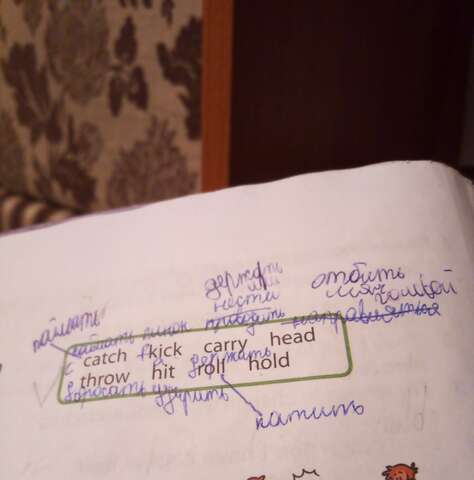 держать
или
нести
отбить
мяч головой
поймать
делать пинок приводить направляться
catch kick carry head
держать
throw hit roll hold
бросать
ударить
катить